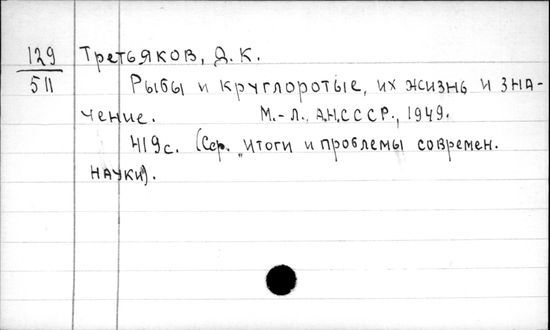 129 Третьяков, Д. К.
511 Рыбы и круглоротые, их жизнь и зна-
чение. М.-Л., А.Н.СССР., 1949.
419с. (Сер. „итоги и проблемы современ.
науки).